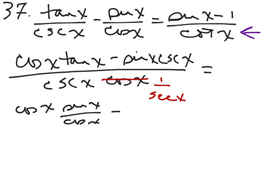 37. tanx/cscx - sinx/cosx = sinx-1/cotx
cosx tanx - sinx cscx / cscx cosx 1/secx =
cosx sinx/cosx -